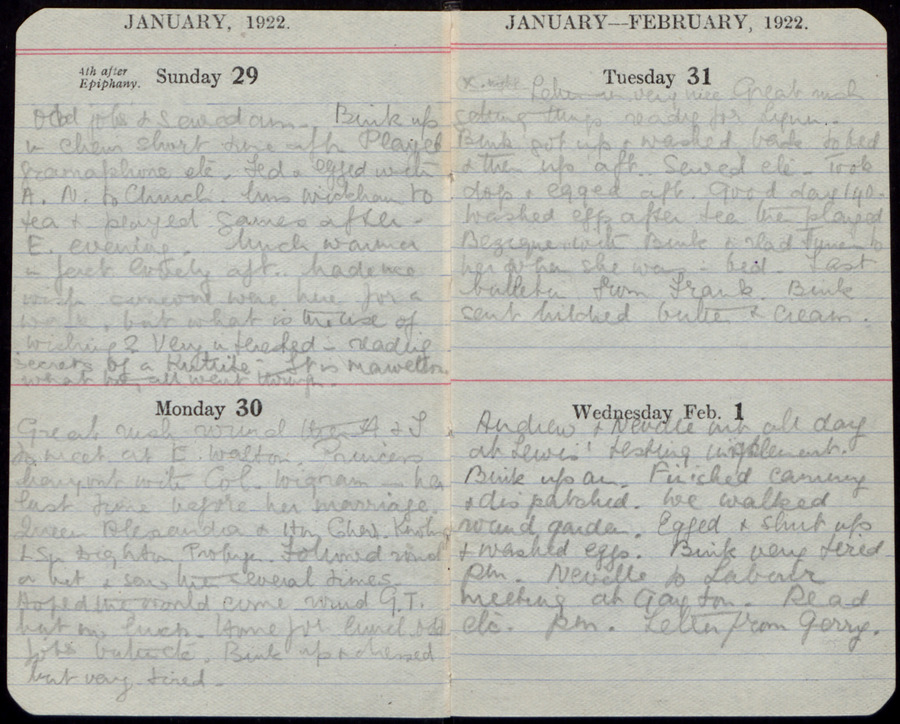 JANUARY, 1922.
4th after Epiphany. Sunday 29
Odd jobs & sewed am. Bink up
in chair short time aft. Played
gramaphone etc. Fed & egged with
A. N. to Church. to
tea & played games after
E. evening. Much warmer
in fact lovely aft.
wish someone were here for a
but what is the use of
wishing? Very interested reading
secrets of a It is
what all went through.
Monday 30
Great rush round A & I
to meet at E. Walton. Princess
with Col. Wigram her
last time before her marriage.
Queen Alexandra & Hon Char.
& Sir Dighton Probyn. Followed round
a bit & saw several times
Hoped would come round G.T.
but no luck. Home for lunch. Odd
jobs Bink up & dressed
but very tired
JANUARY—FEBRUARY, 1922.
Tuesday 31
very nice Great rush
getting things ready for Lynn.
Bink got up & washed back to bed
& then up aft. Sewed etc. Took
dog & egged aft. Good day 140.
Washed eggs after tea then played
Bezique with Bink & read to
her when she was in bed. Last
bulletin from Frank. Bink
sent Mildred butter & cream.
Wednesday Feb. 1
Andrew & Neville out all day
at Lewis' testing implement.
Bink up am. Finished
& dispatched. We walked
round garden. Egged & shut up
& washed eggs. Bink very tired
pm. Neville to Labour
meeting at Gayton. Read
etc. pm. Letter from Gerry.